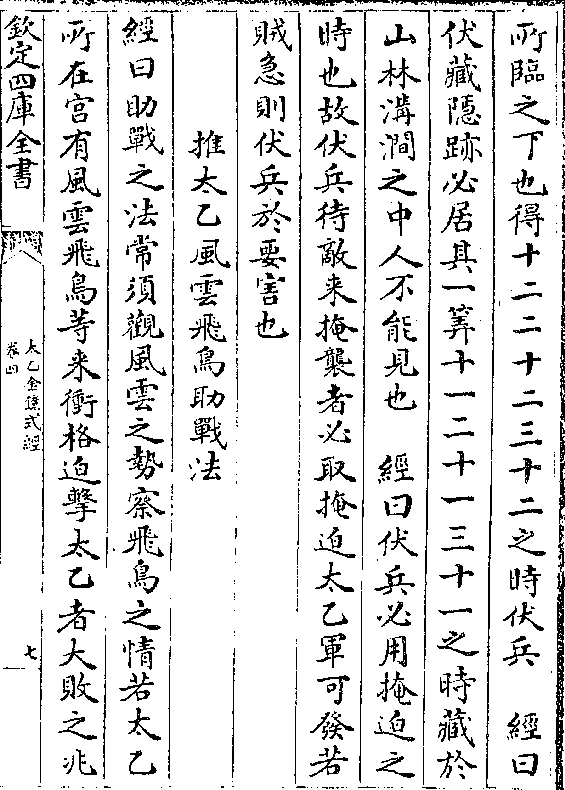 所臨之下也得十二二十二三十二之時伏兵　經曰
伏藏隱跡必居其一筭十一二十一三十一之時藏於
山林溝澗之中人不能見也　經曰伏兵必用掩迫之
時也故伏兵待敵来掩襲者必取掩迫太乙軍可發若
賊急則伏兵於要害也
推太乙風雲飛鳥助戰法
經曰助戰之法常須觀風雲之勢察飛鳥之情若太乙
所在宫有風雲飛鳥等来衝格迫擊太乙者大敗之兆
欽定四庫全書
太乙金鏡式經
卷四
七